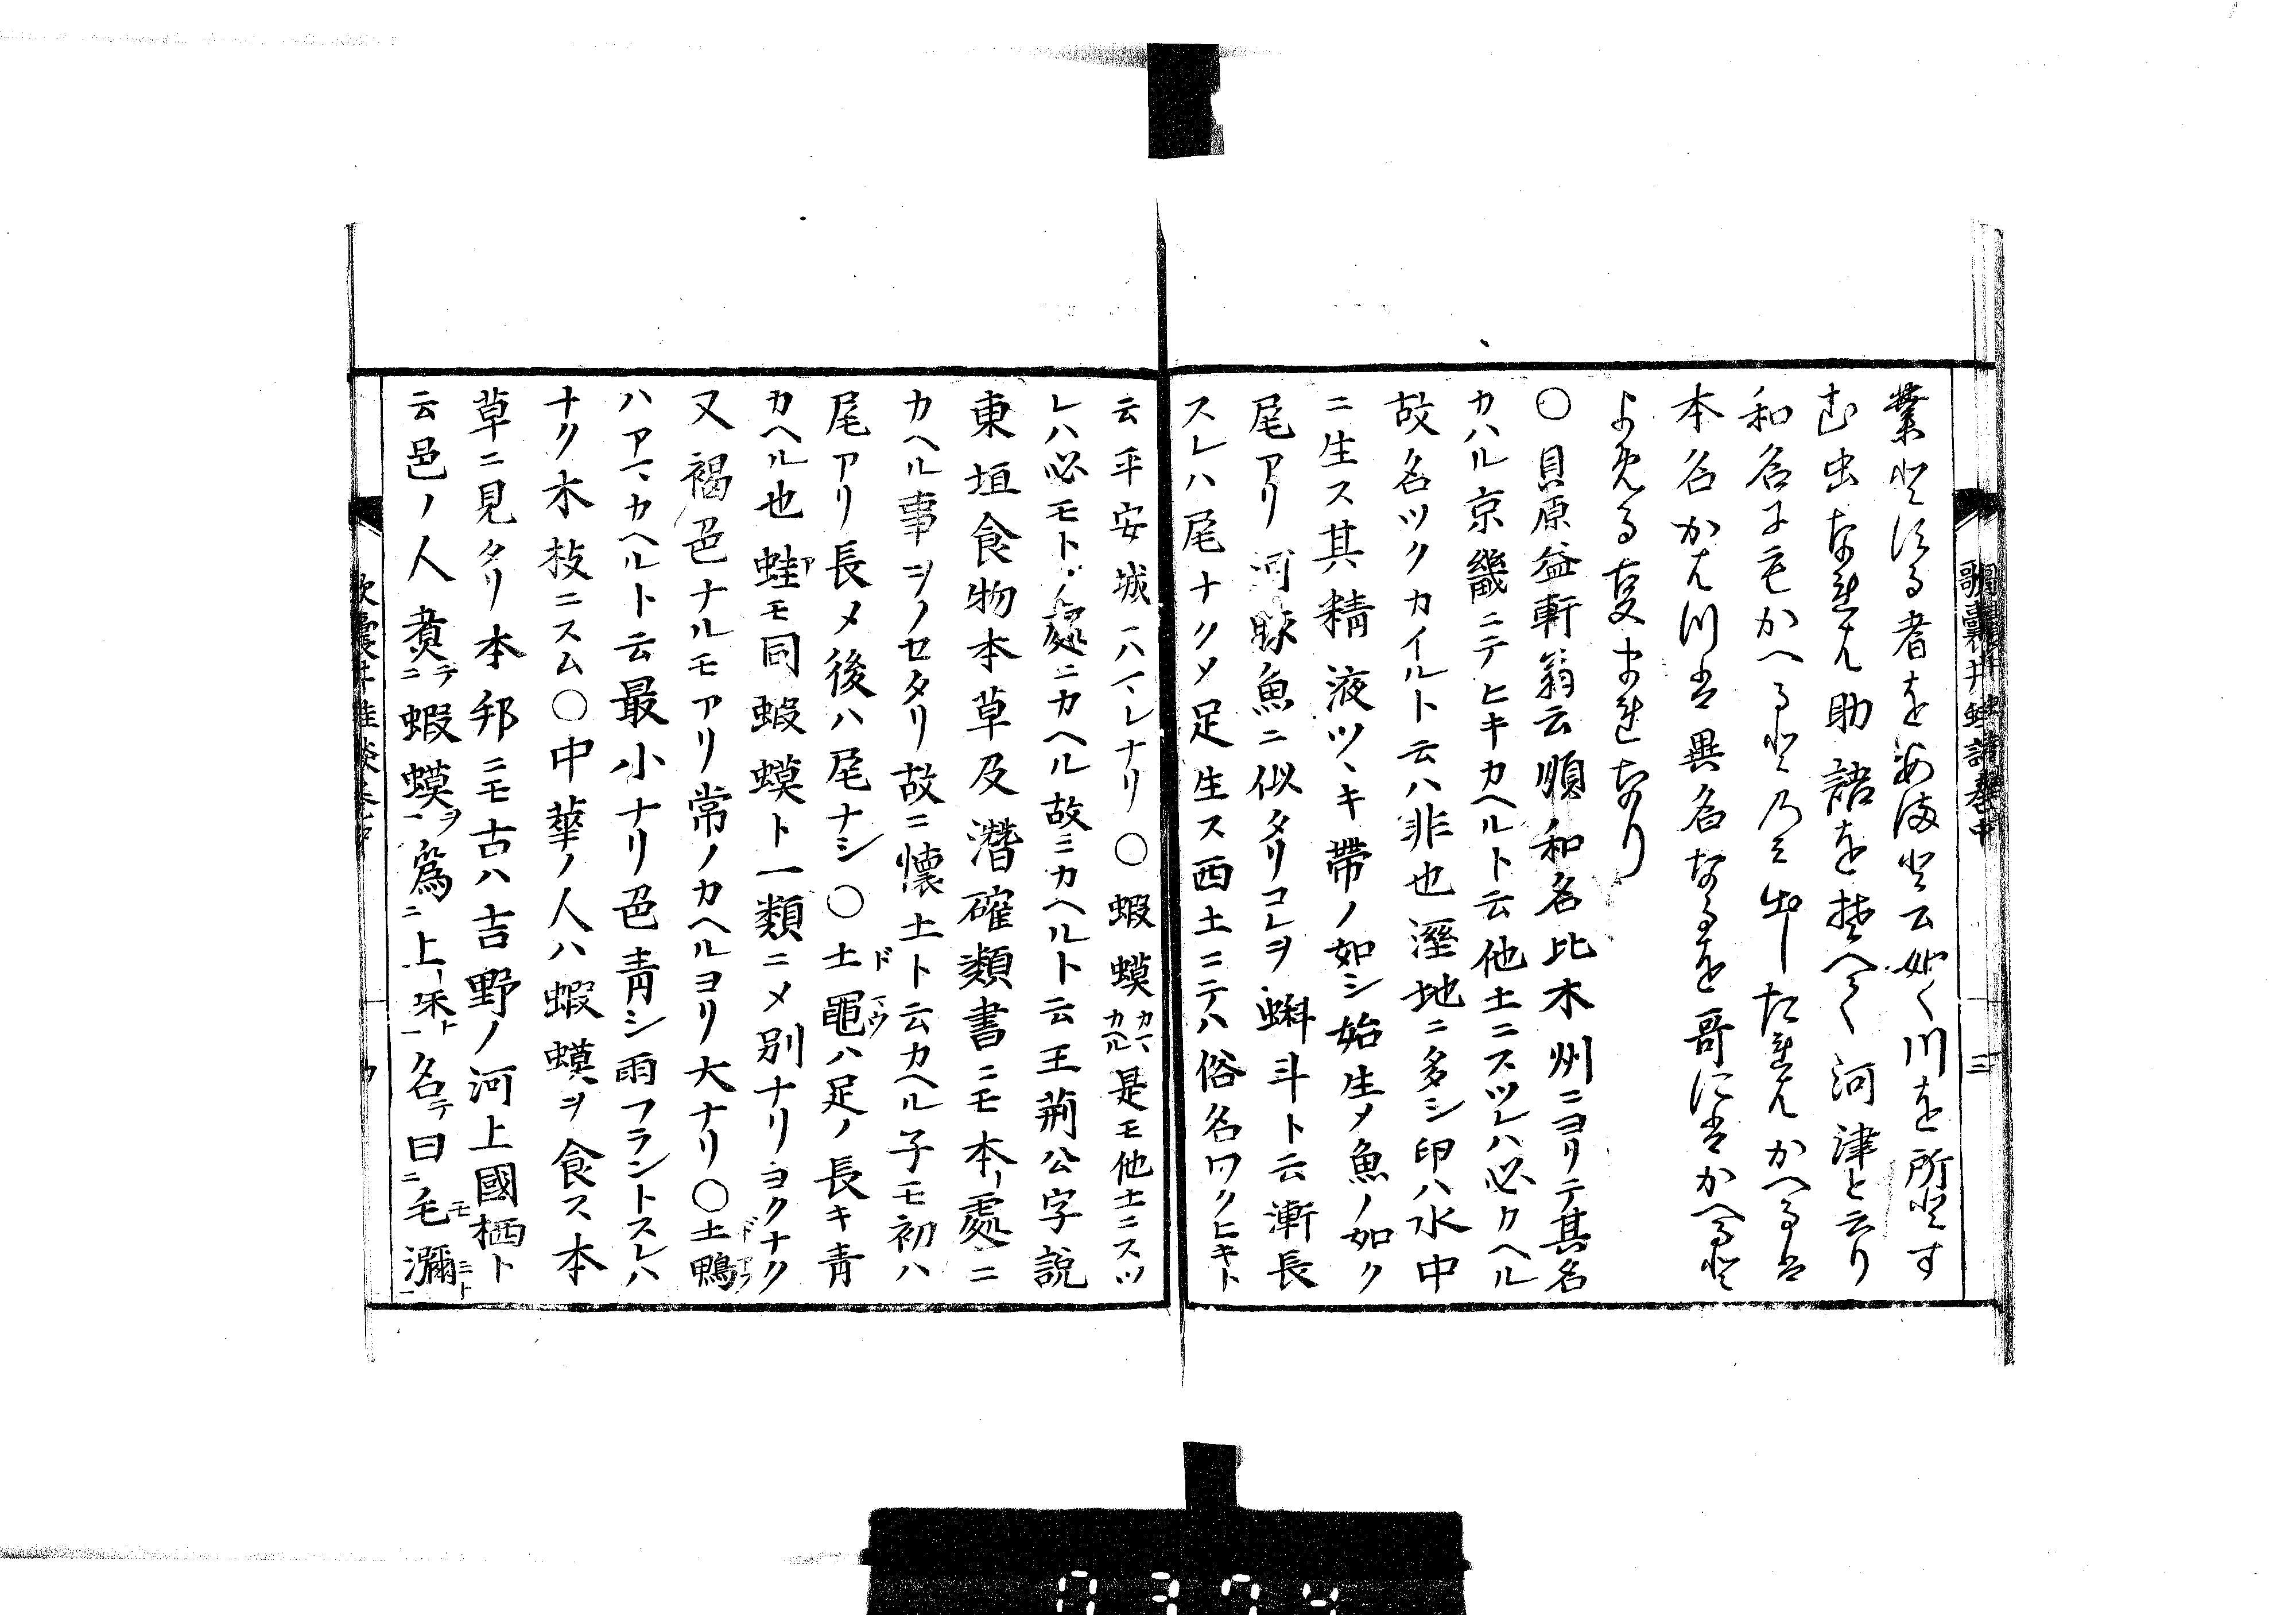 業とする者をあまと云如く川を所とす
む虫なれは助語を捨へて河津と云り
和名にもかへるとのミ出したれはかへるは
本名かはつは異名なるを哥にはかへると
よめる叓まれなり
○貝原益軒翁云順和名比木州ニヨリテ其名
カハル京畿ニテヒキカヘルト云他土ニスツレハ必カヘル
故名ツクカイルト云ハ非也溼地ニ多シ卵ハ水中
ニ生ス其精液ツヽキ帶ノ如シ始生メ魚ノ如ク
尾アリ河豚魚ニ似タリコレヲ蝌斗ト云漸長
スレハ尾ナクメ足生ス西土ニテハ俗名ワクヒキト
云平安城ニハマレナリ○蝦蟆カマカヘル是モ他土ニスツ
レハ必モトノ處ニカヘル故ニカヘルト云王荊公字說
東垣食物本草及潛確類書ニモ本ノ處ニ
カヘル事ヲノセタリ故ニ懷土ト云カヘル子モ初ハ
尾アリ長メ後ハ尾ナシ○土黽ハ足ノ長キ青
カヘル也蛙モ同蝦蟆ト一類ニメ別ナリヨクナク
又褐色ナルモアリ常ノカヘルヨリ大ナリ○土鴨
ハアマカヘルト云最小ナリ色青シ雨フラントスレハ
ナク木枝ニスム○中華ノ人ハ蝦蟆ヲ食ス本
草ニ見タリ本邦ニモ古ハ吉野ノ河上國栖ト
云邑ノ人煑テ蝦蟆ヲ爲上ノ味ト名テ曰毛瀰ト